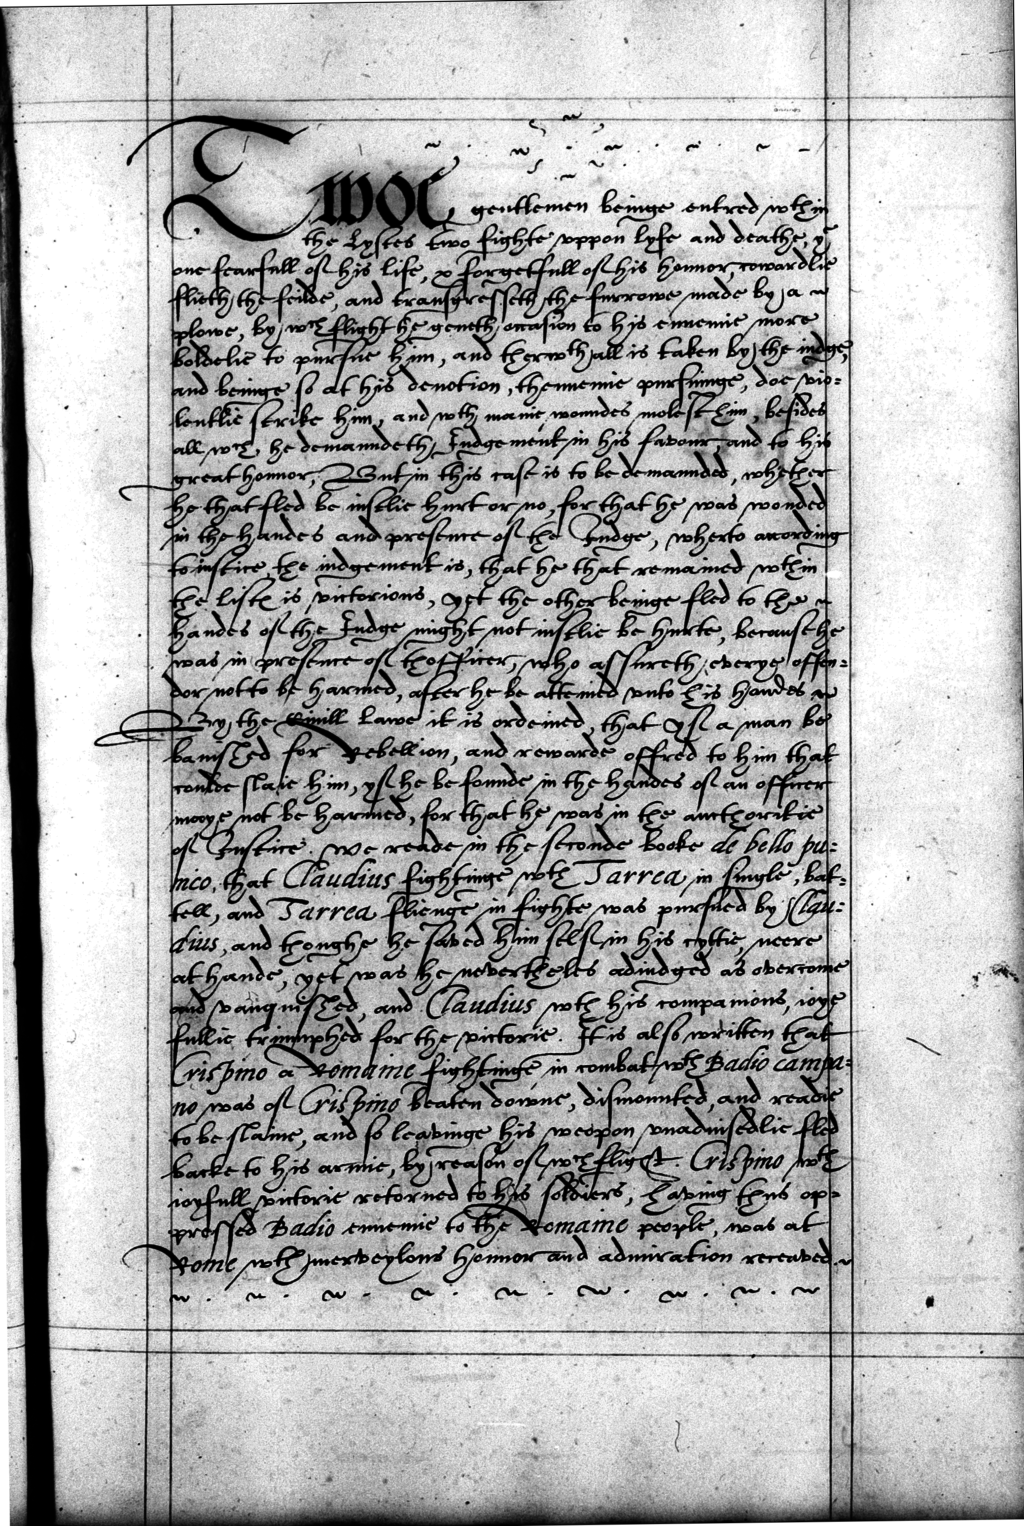 Twoe gentlemen beinge entred wthin
the Lystes two fighte vppon lyfe and deathe, ye
one fearfull of his life, & forgetfull of his honnor, cowardlie
flieth the feilde, and transgresseth the furrowe made by a
plowe, by wch flight he geueth occasion to his ennemie more
boldelie to pursue him, and therwthall is taken by the iudge,
and beinge so at his deuotion, thennemie pursuinge, doe vio=
lentlie strike him, and wth manie woundes molest him, besides
all wch he demaundeth Iudgement in his favour, and to his
great honnor, But in this case is to be demaunded, whether
he that fled be iustlie hurt or no, for that he was wonded
in the handes and presence of the Iudge, wherto according
to iustice, the iudgement is, that he that remained wthin
the listes is victorious, yet the other beinge fled to the
handes of the Iudge might not iustlie be hurte, because he
was in presence of thofficer, who assureth everye offen=
dor not to be harmed, after he be atteined vnto his handes
By the Ciuill Lawe it is ordeined, that yf a man be
banished for Rebellion, and rewarde offred to him that
coulde slaie him, yf he be founde in the handes of an officer
maye not be harmed, for that he was in the aucthoritie
of Iustice. we reade in the seconde booke de bello pu=
nico, that Claudius fightinge wth Tarrea in single bat=
tell, and Tarrea flienge in fighte was pursued by Clau=
dius, and thoughe he saved him self in his cyttie, neere
at hande, yet was he nevertheles adiudged as overcome
and vanquished, and Claudius wth his companions, ioye
fullie triumphed for the victorie. It is also written that
Crispino a Romaine fightinge in combat wth Badio campa=
no was of Crispino beaten downe, dismounted, and readie
to be slaine, and so leavinge his weopon vnaduisedlie fled
backe to his armie, by reason of wch flight. Crispino wth
ioyfull victorie retorned to his soldiers, having thus op=
pressed Badio ennemie to the Romaine people, was at
Rome wth merveylous honnor and admiration receaved.